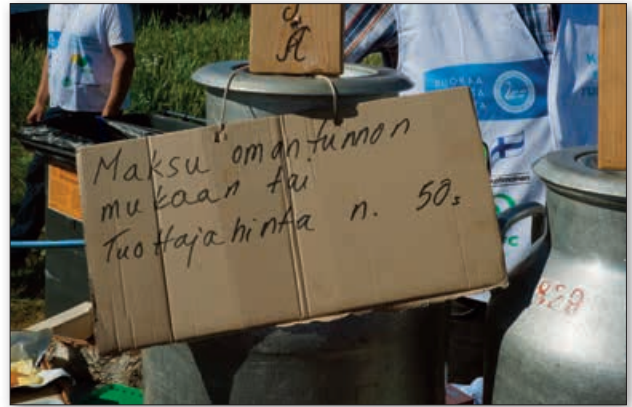 A
Maksu omantunnon
mukaan tai
Tuottajahinta n. 50s
RUOKAA
828